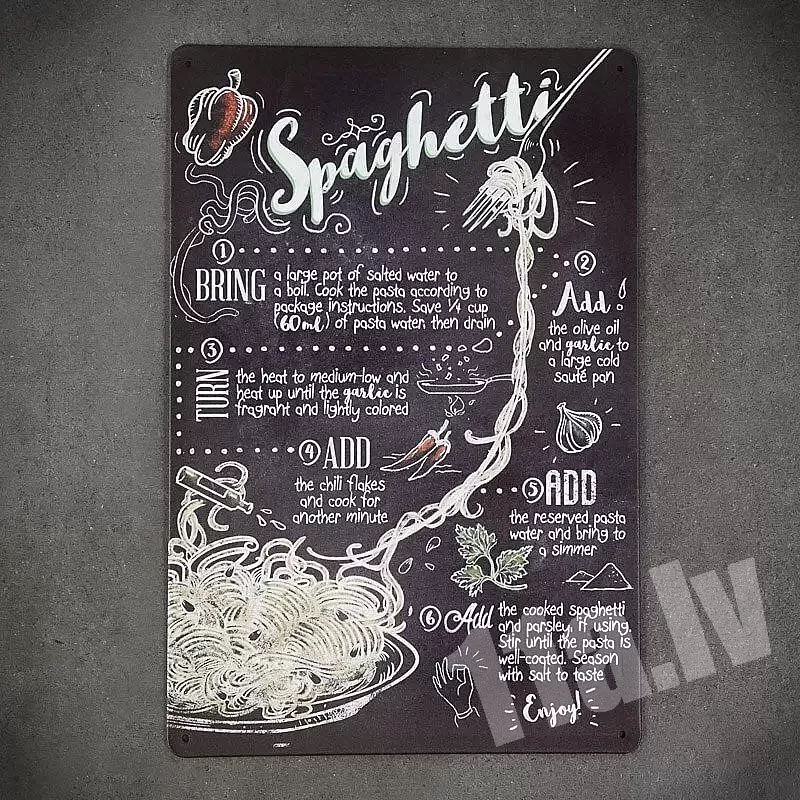 Spaghetti
1
BRING a large pot of salted water to
a boil. Cook the pasta according to
package instructions. Save 1/4 cup
(60ml) of pasta water then drain
2
Add
the olive oil
and garlic to
a large cold
sauté pan
3
TURN the heat to medium-low and
heat up until the garlic is
fragrant and lightly colored
4 ADD
the chili flakes
and cook for
another minute
5 ADD
the reserved pasta
water and bring to
a simmer
6 Add the cooked spaghetti
and parsley, if using.
Stir until the pasta is
well-coated. Season
with salt to taste
Enjoy!
1td.lv